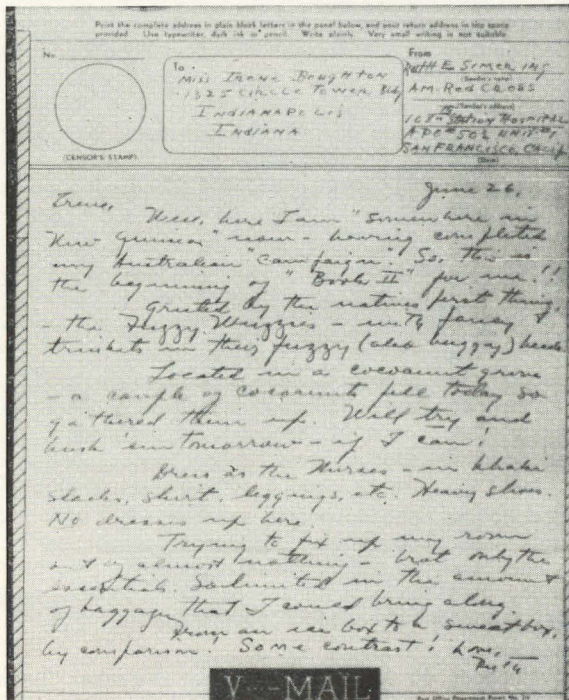 Print the complete address in plain block letters in the panel below, and your return address in the space
provided. Use typewriter, dark ink or pencil. Write plainly. Very small writing is not suitable.
No.
(CENSOR'S STAMP)
To
MISS IRENE BOUGHTON
1325 CIRCLE TOWER Bldg
INDIANAPOLIS
INDIANA
From
RUTH E. SIMERING
(Sender's name)
AM. RED CROSS
(Sender's address)
TH STATION HOSPITAL
SAN FRANCISCO, CALIF
(Date)
June 26,
Irene,
Well, here I am "Somewhere in
New Guinea" now - having completed
my Australian "Campaign". So, this is
the beginning of "Book II" for me!!
Greeted by the natives first thing,
- the Fuzzy Wuzzies - with fancy
trinkets in their fuzzy (also buggy) heads.
Located in a cocoanut grove
- a couple of cocoanuts fell today so
gathered them up. Will try and
husk 'em tomorrow - if I can!
Dress as the Nurses - in khaki
slacks, shirt, leggings, etc. Heavy shoes.
No dresses up here.
Trying to fix up my room
out of almost nothing - brot only the
essentials. So limited in the amount
of baggage that I could bring along.
From an ice box to a sweat box,
by comparison! Some contrast! Love,
Ruth
V...-MAIL